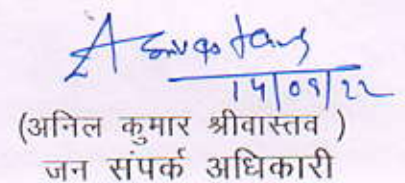 14/09/22
(अनिल कुमार श्रीवास्तव )
जन संपर्क अधिकारी